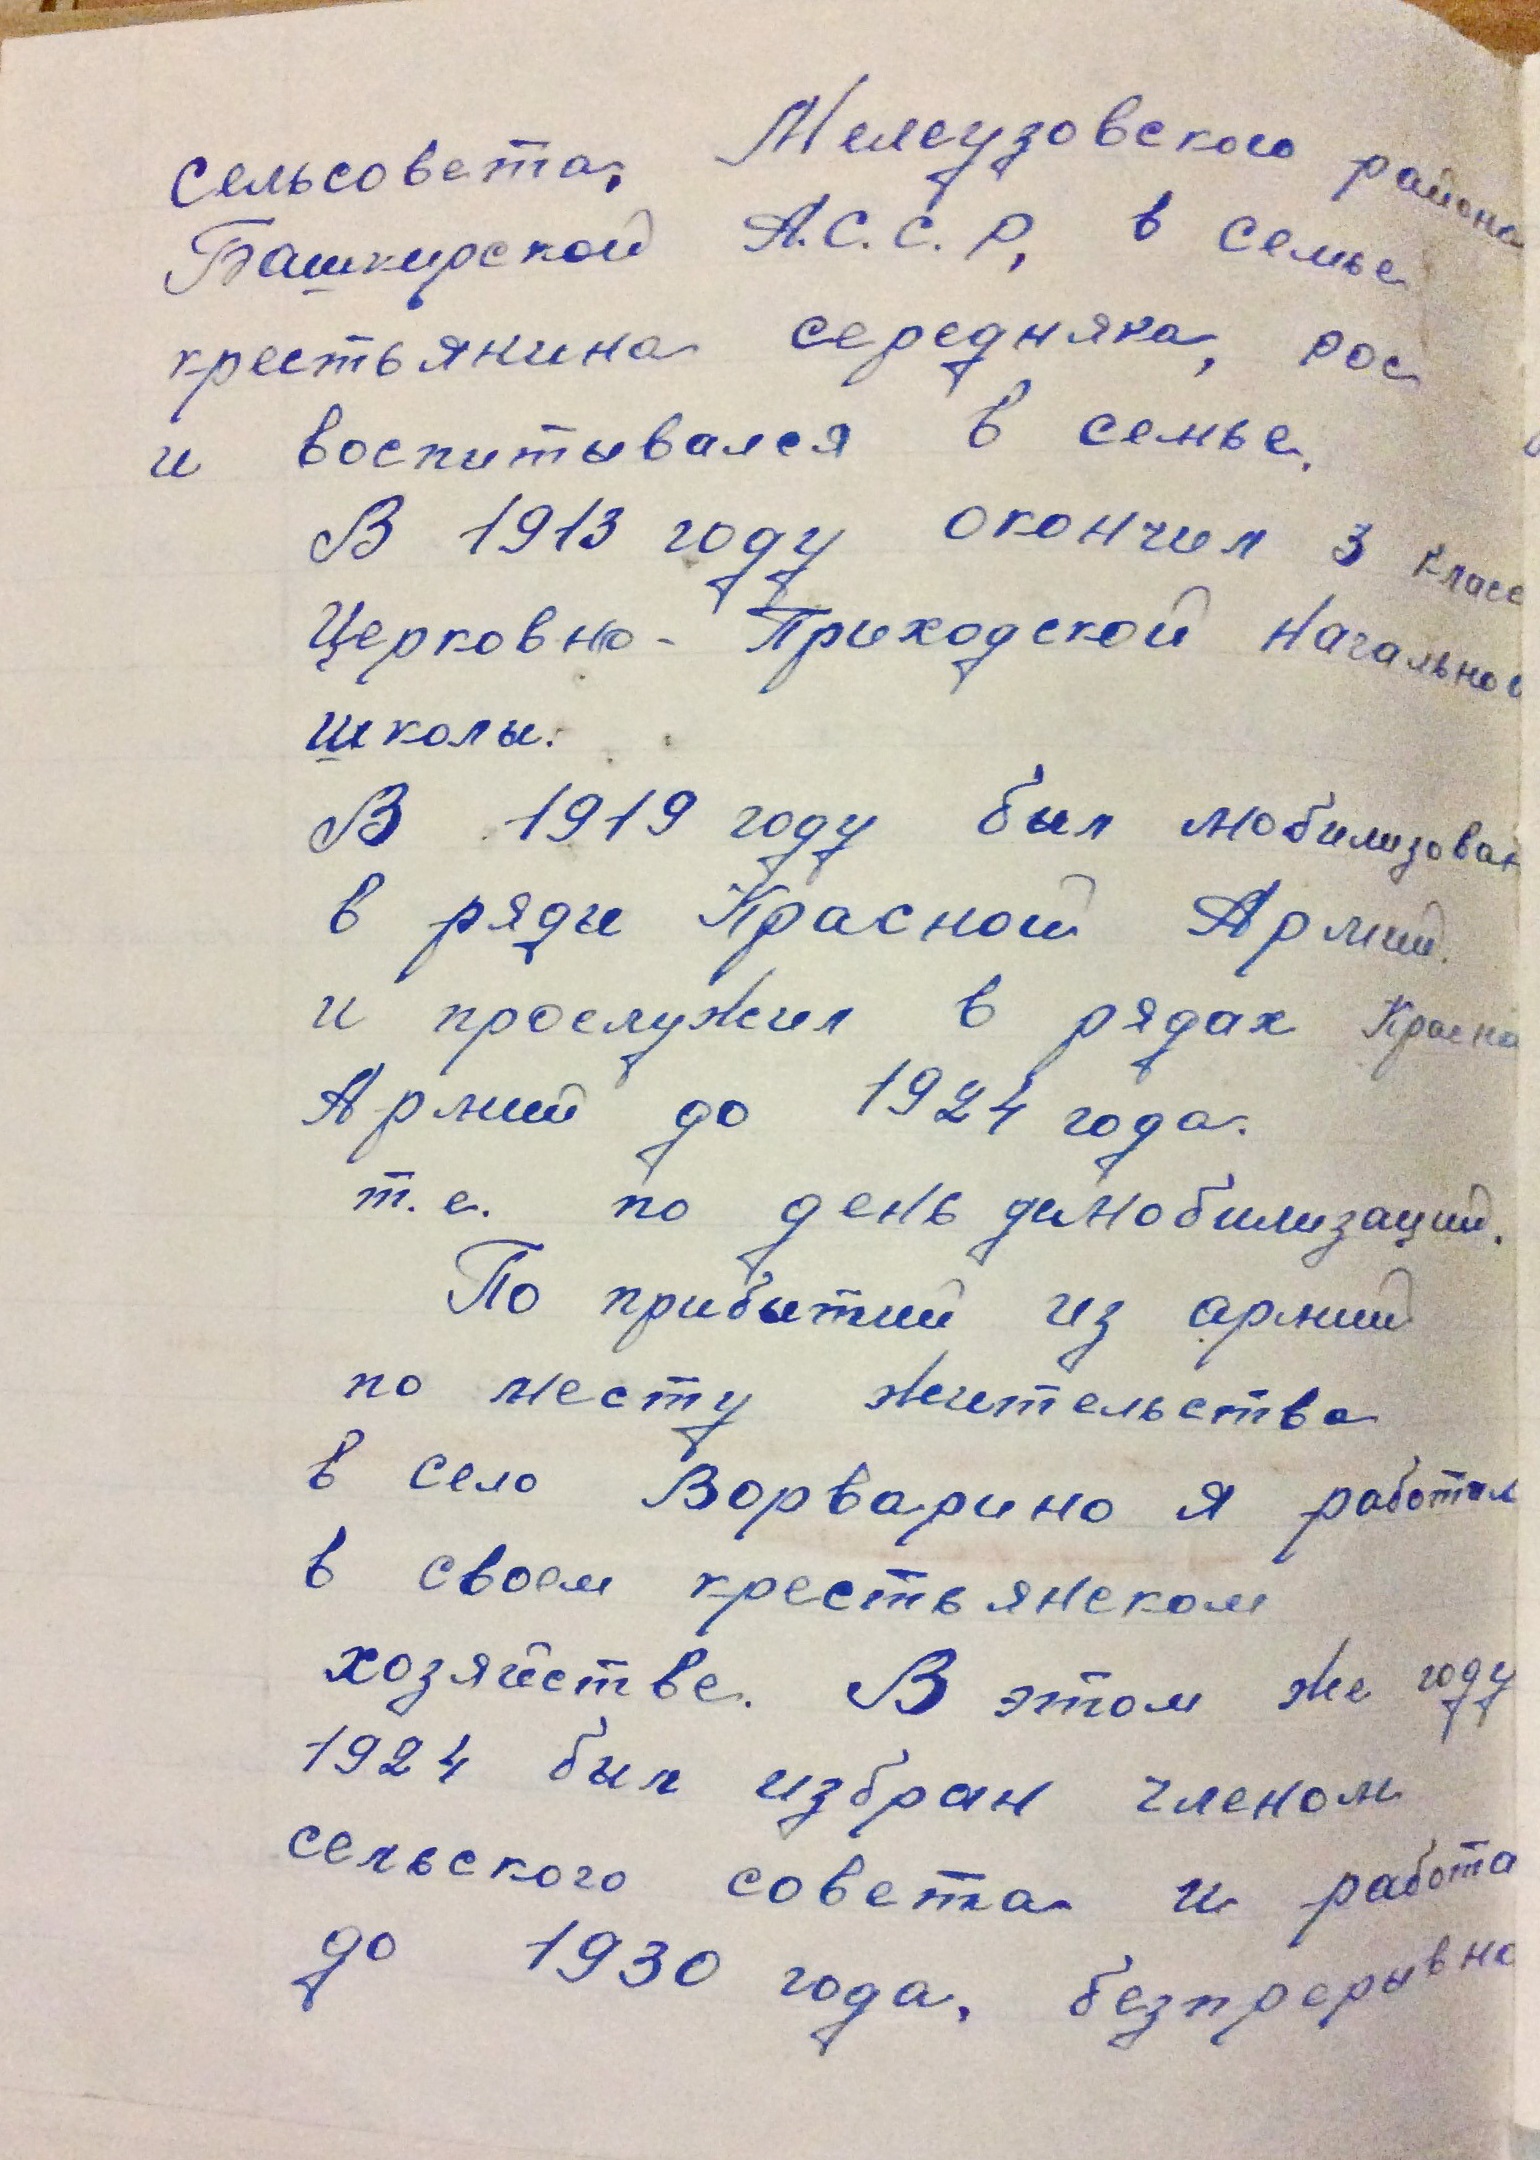 сельсовета, Мелеузовского района
Башкирской А.С.С.Р, в семье
крестьянина середняка, рос
и воспитывался в семье.
В 1913 году окончил 3 класс
Церковно-Приходской Начальной
школы.
В 1919 году был мобилизован
в ряды Красной Армий.
и прослужил в рядах Красно
Армий до 1924 года.
т.е. по день димобилизаций.
По прибытий из армий
по месту жительства
в село Ворварино я работал
в своем крестьянском
хозяйстве. В этом же году
1924 был избран членом
сельского совета и работа
до 1930 года, безпрерывно